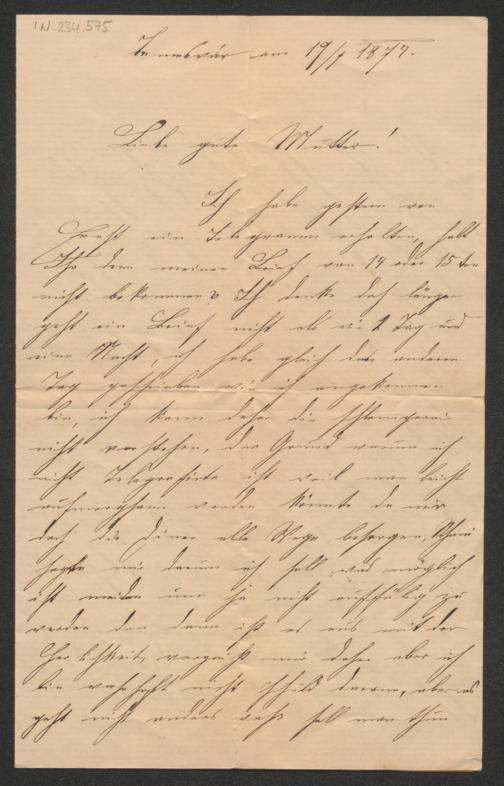 I.N. 234.575
Temesvár am 19/7 1877.
Liebe gute Mutter!
Ich habe gestern von
ein Telegramm erhalten, habt
Ihr den meinen Brief von 14 oder 15ten
nicht bekommen? Ich denke daß länger
geht ein Brief nicht als wie 2 Tag und
eine Nacht, ich habe gleich den anderen
Tag geschrieben wie ich angekommen
bin, ich kann daher die Schlamperei
nicht verstehen, der Grund warum ich
nicht Telegrafirte ist weil man leicht
aufmerksam werden könnte da mir
doch die Diener alle Wege besorgen,
sagte mir darum ich soll was möglich
ist meiden um ja nicht auffällig zu
werden den dann ist es aus mit der
Herlichkeit, verzeiht mir daher aber ich
bin wahrhaft nicht Schuld daran, aber es
geht nicht anders was soll man thun